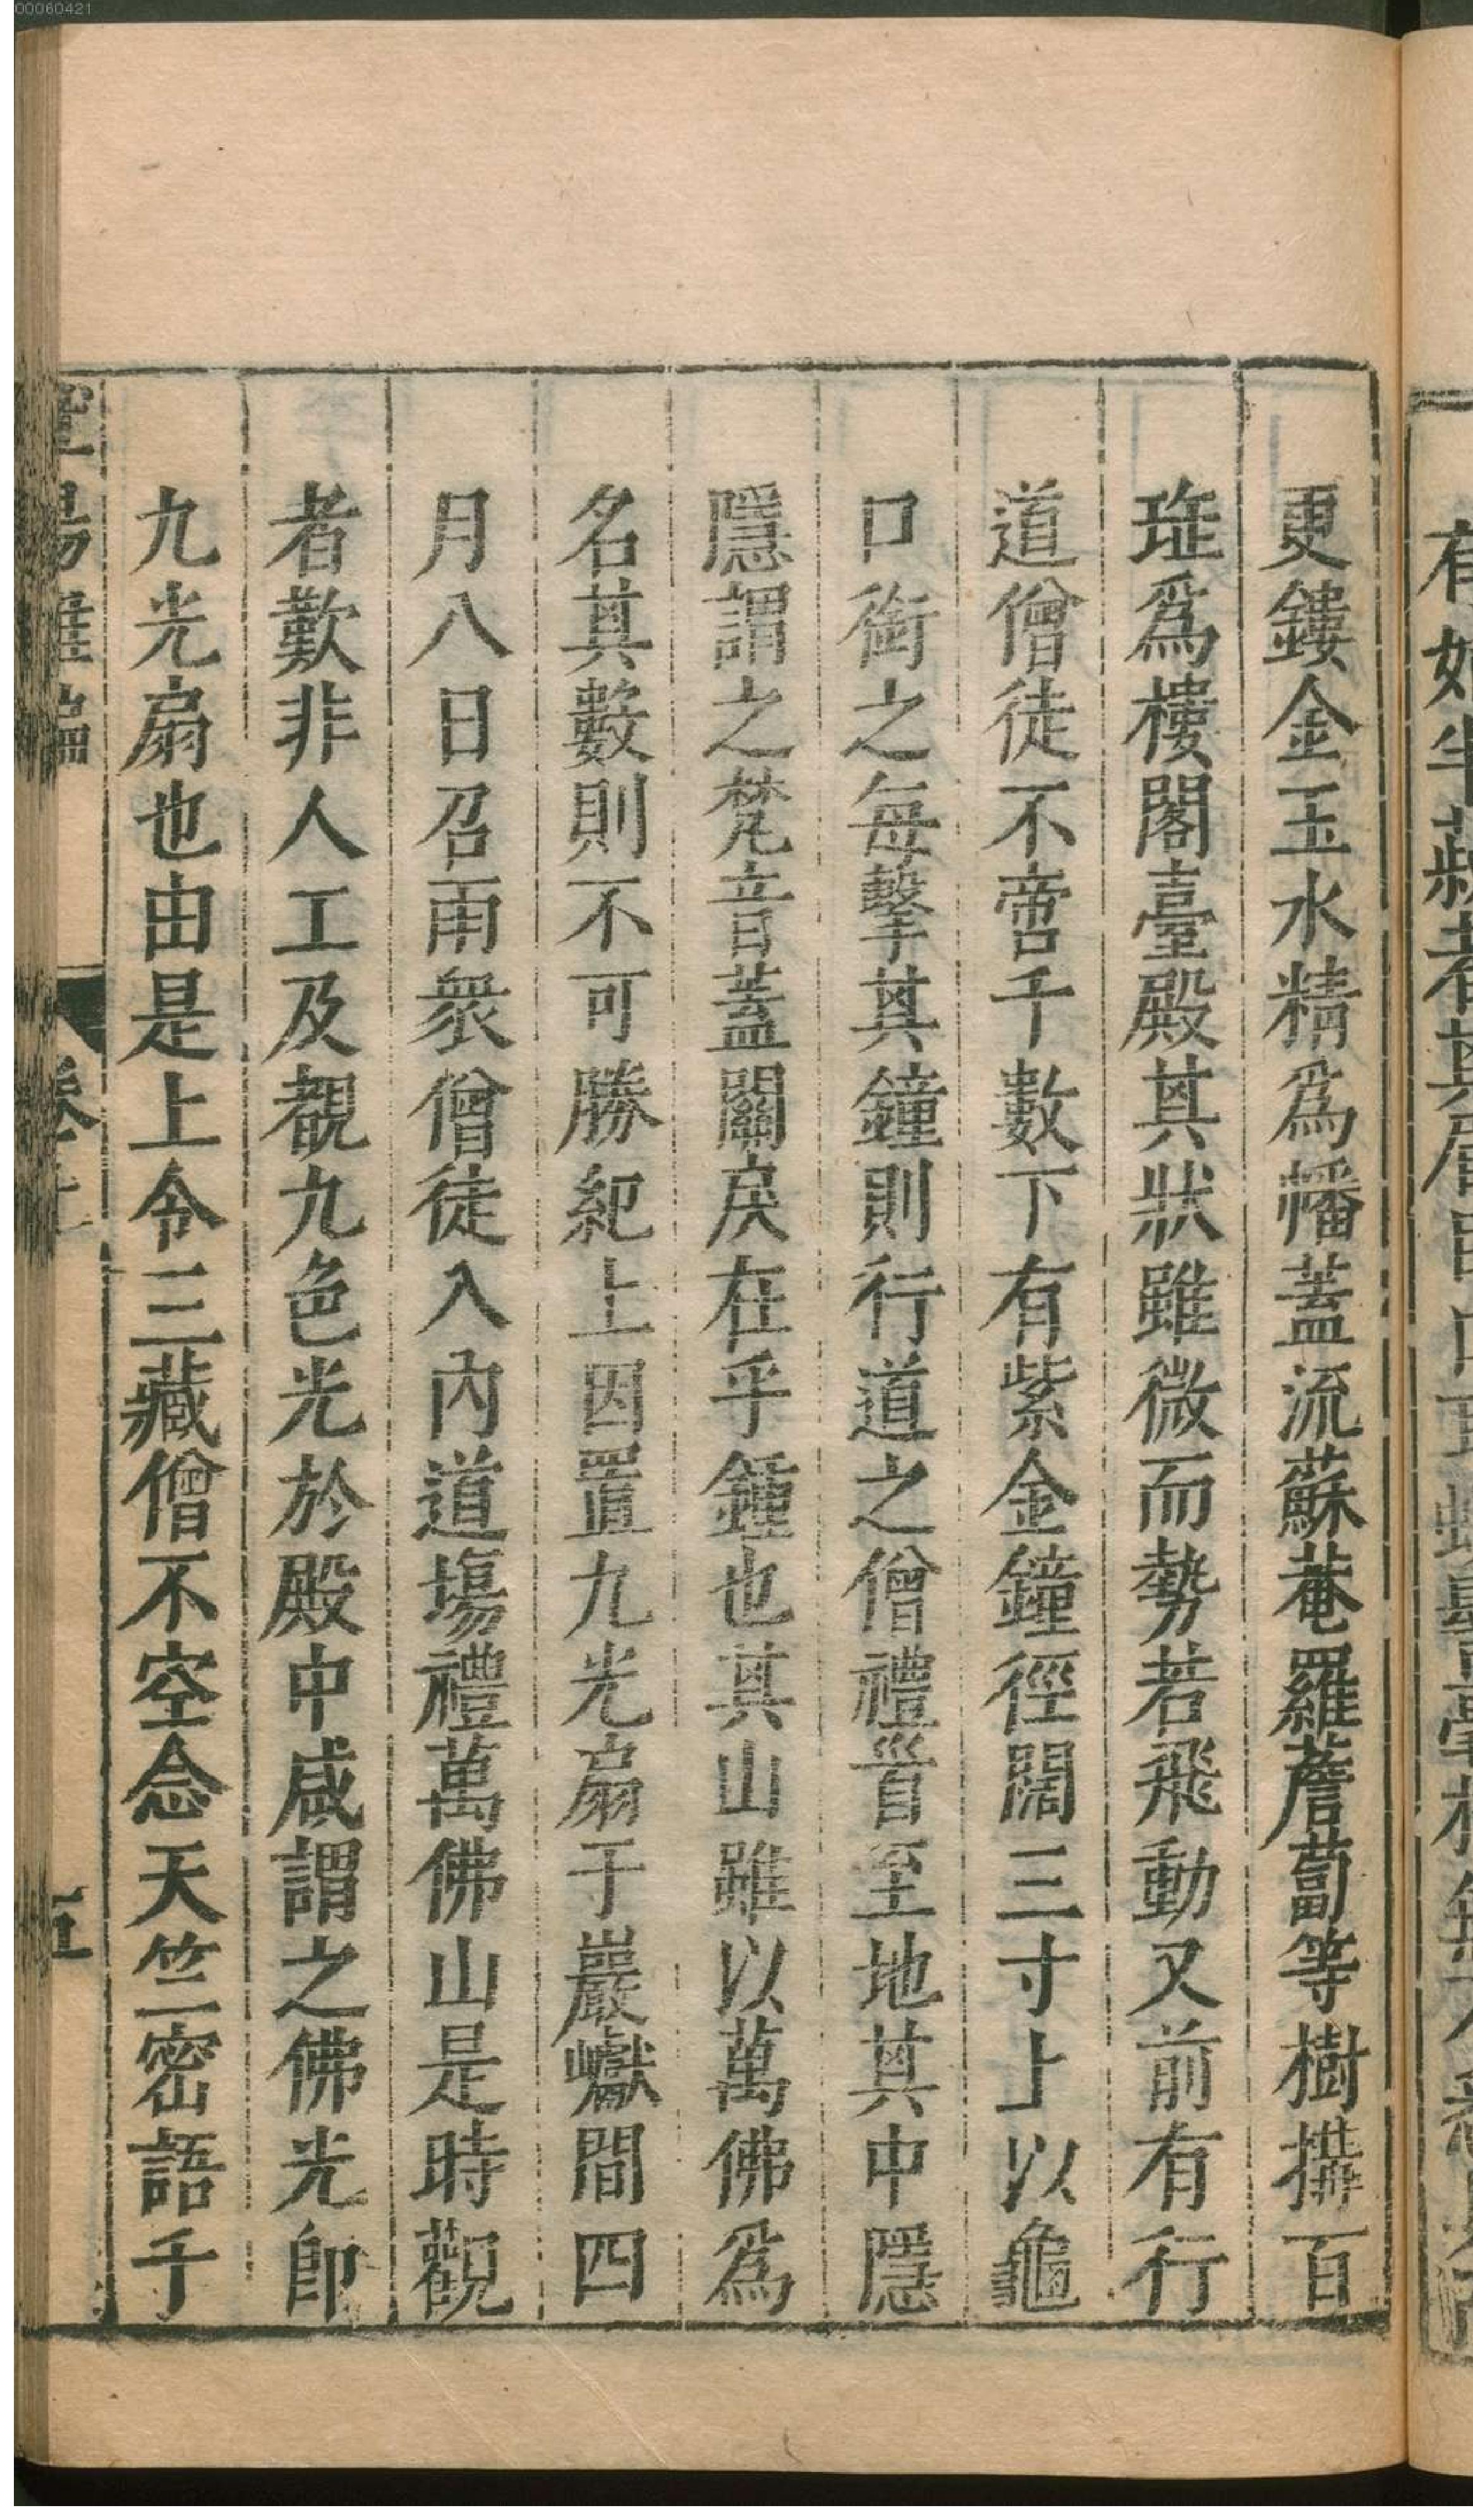 00060421
更鏤金玉水精爲幡蓋流蘇菴羅薝蔔等樹搆百
琲爲樓閣臺殿其狀雖微而勢若飛動又前有行
道僧徒不啻千數下有紫金鐘徑闊三寸上以龜
口銜之每擊其鐘則行道之僧禮首至地其中隱
隱謂之梵音蓋關戾在乎鍾也其山雖以萬佛爲
名其數則不可勝紀上因置九光扇于巖巘間四
月八日召兩衆僧徒入內道塲禮萬佛山是時觀
者歎非人工及覩九色光於殿中咸謂之佛光卽
九光扇也由是上令三藏僧不空念天竺密語千